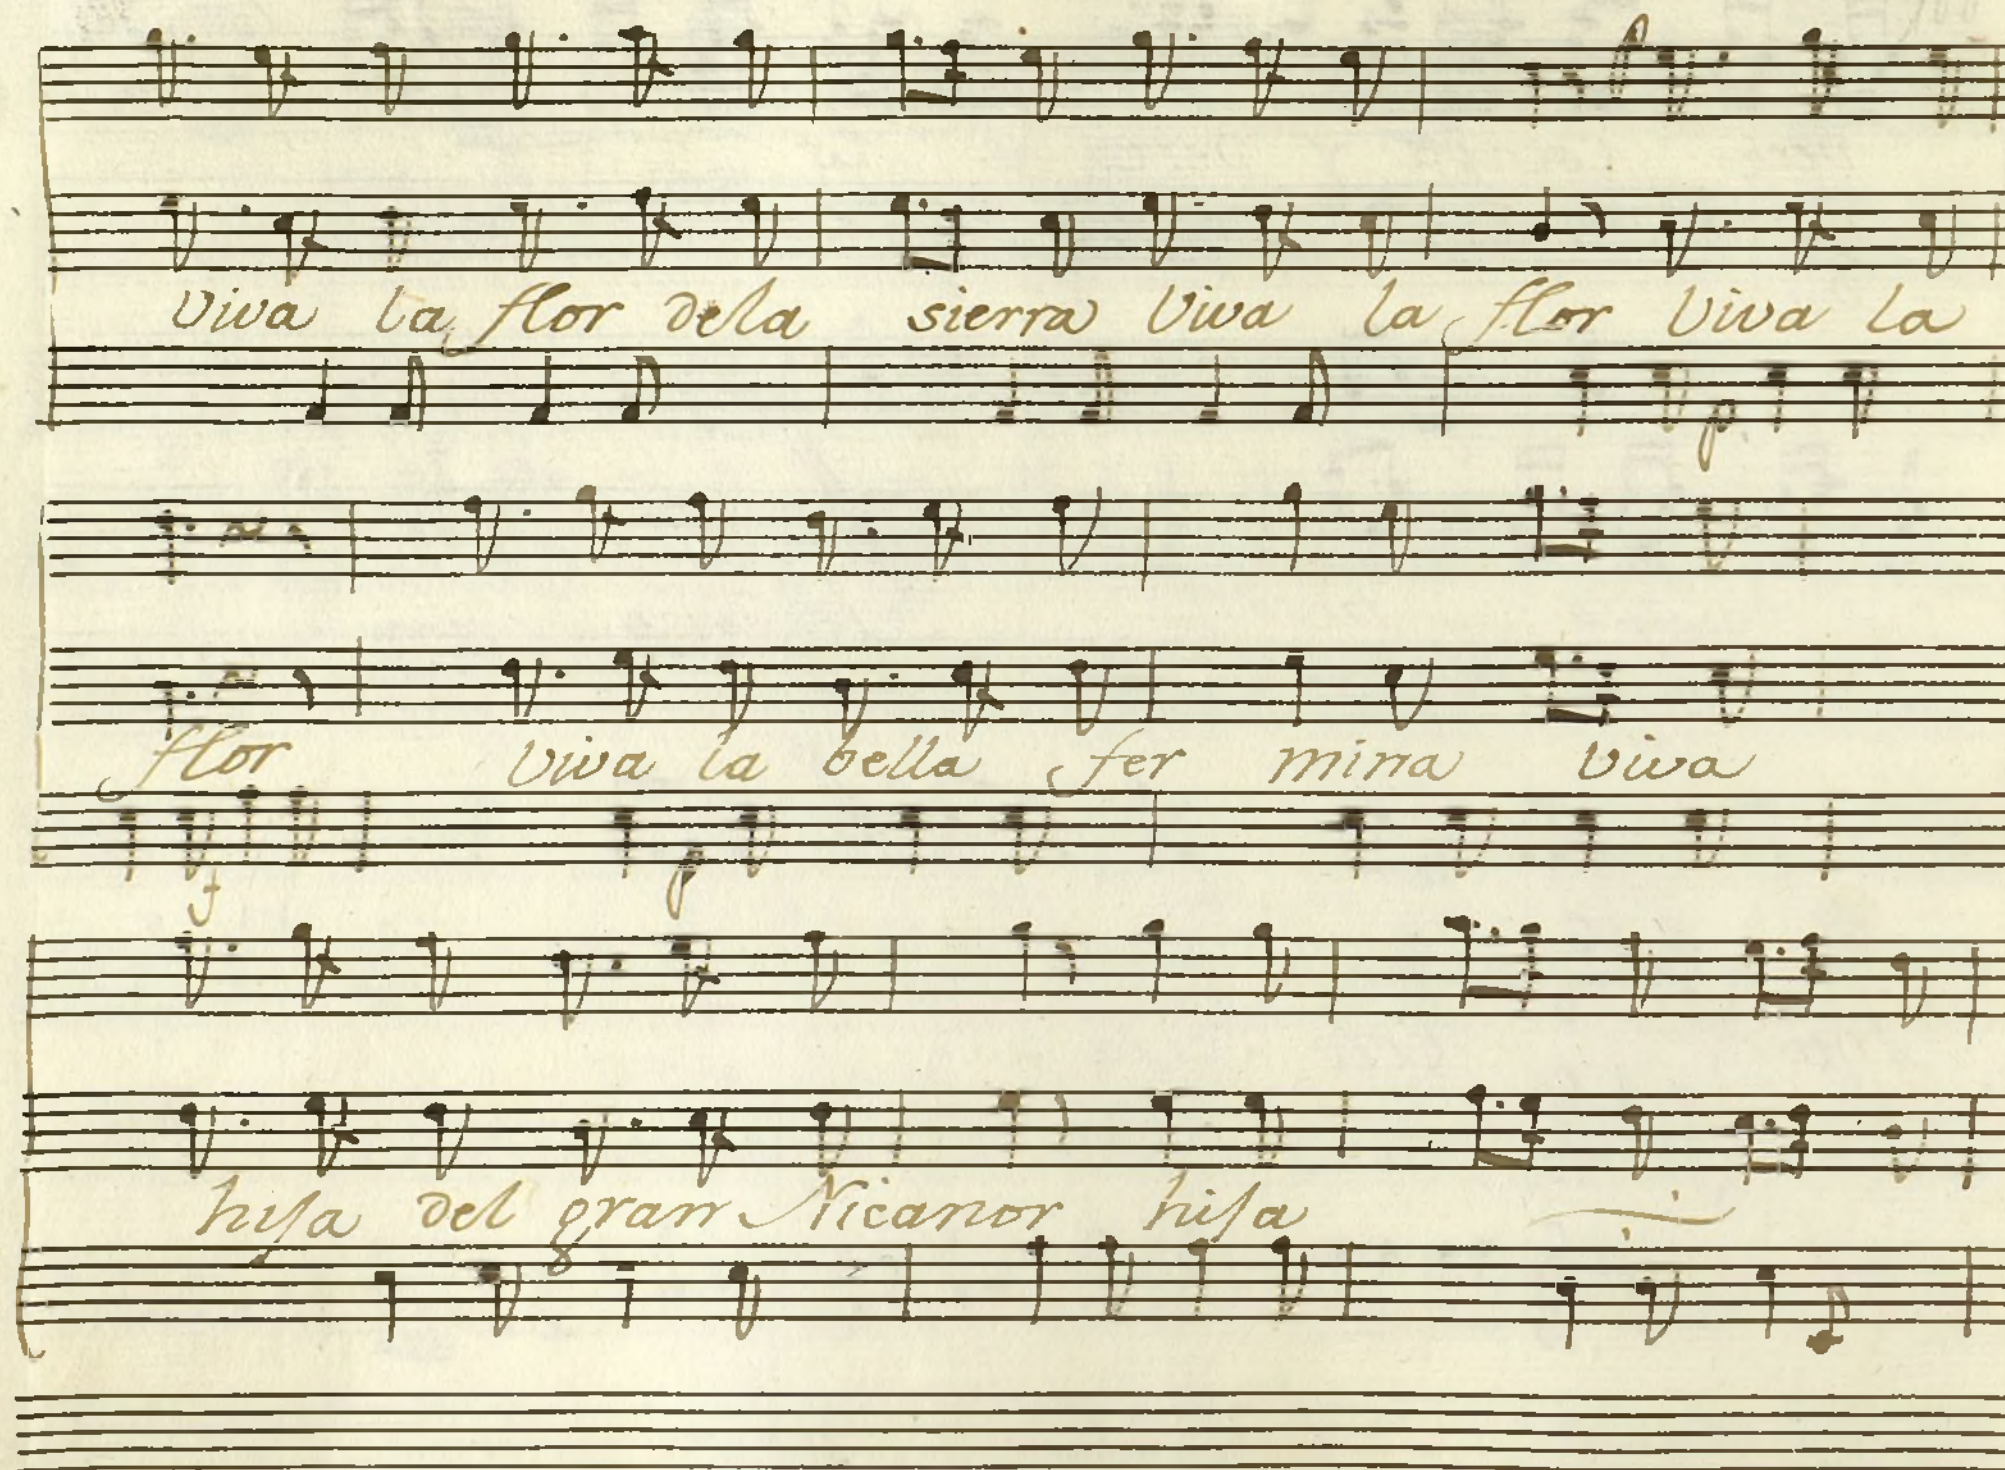 Viva la flor dela sierra Viva la flor Viva la
p
flor Viva la bella fer mina viva
f p
hija del gran Nicanor hija